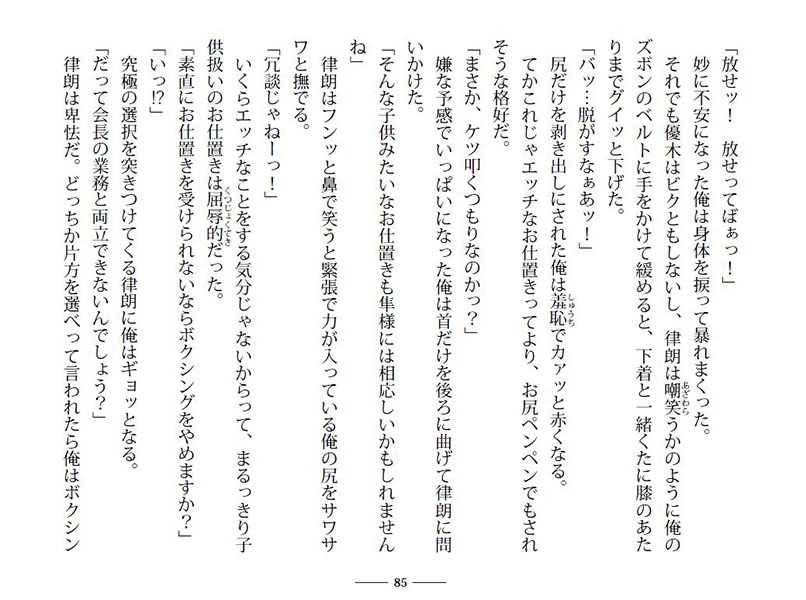 「放せッ！　放せってばぁっ！」
妙に不安になった俺は身体を捩って暴れまくった。
それでも優木はビクともしないし、律朗は嘲笑うかのように俺の
ズボンのベルトに手をかけて緩めると、下着と一緒くたに膝のあた
りまでグイッと下げた。
「バッ…脱がすなぁあッ！」
尻だけを剥き出しにされた俺は羞恥でカァッと赤くなる。
てかこれじゃエッチなお仕置きってより、お尻ペンペンでもされ
そうな格好だ。
「まさか、ケツ叩くつもりなのかっ？」
嫌な予感でいっぱいになった俺は首だけを後ろに曲げて律朗に問
いかけた。
「そんな子供みたいなお仕置きも隼様には相応しいかもしれません
ね」
律朗はフンッと鼻で笑うと緊張で力が入っている俺の尻をサワサ
ワと撫でる。
「冗談じゃねーっ！」
いくらエッチなことをする気分じゃないからって、まるっきり子
供扱いのお仕置きは屈辱的だった。
「素直にお仕置きを受けられないならボクシングをやめますか？」
「いっ!?」
究極の選択を突きつけてくる律朗に俺はギョッとなる。
「だって会長の業務と両立できないんでしょう？」
律朗は卑怯だ。どっちか片方を選べって言われたら俺はボクシン
85